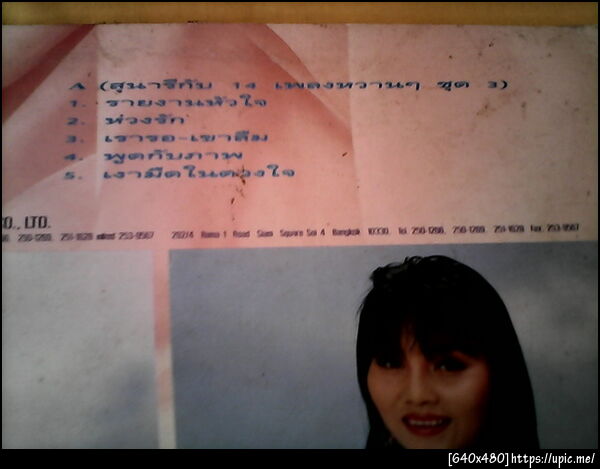 A (สุนารีกับ 14 เพลงหวานๆ ชุด 3)
1. รายงานหัวใจ
2. ห่วงรัก
3. เรารอ-เขาลืม
4. พูดกับภาพ
5. เงามืดในดวงใจ
CO., LTD.
250-1289, 251-1628 แฟกซ์ 253-9567 202/4 Rama 1 Road Siam Square Soi 4 Bangkok 10330. Tel. 250-1286, 250-1289, 251-1628 Fax. 253-9567
[640x480]https://upic.me/